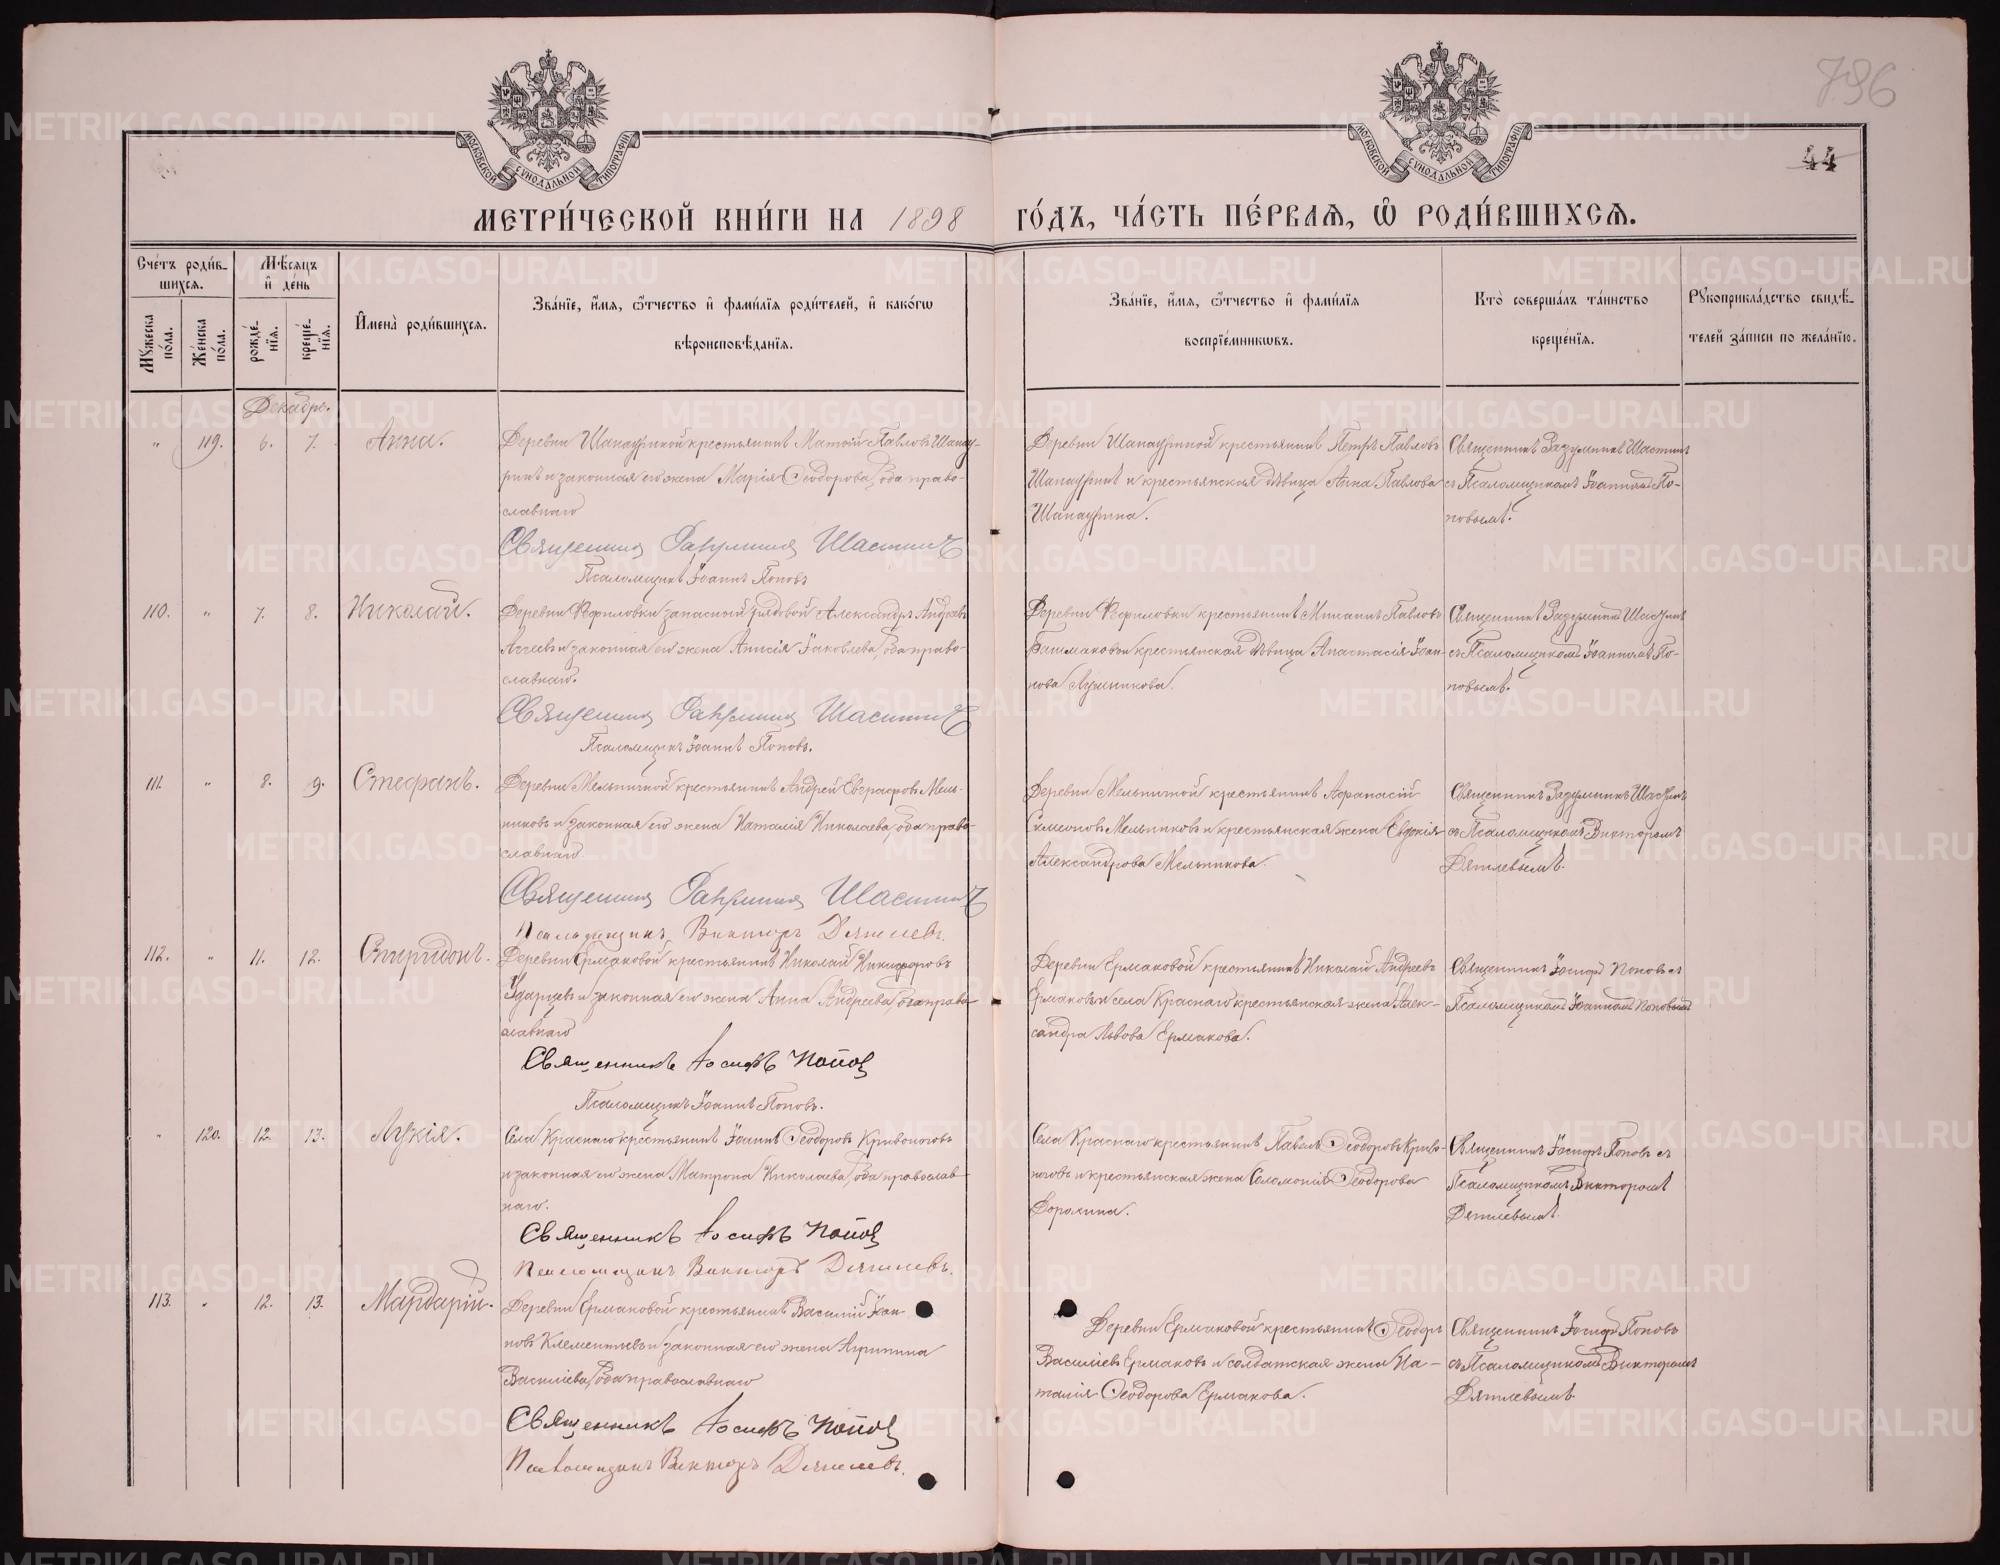 796
44
МОСКОВСКОЙ СѴНОДАЛЬНОЙ ТИПОГРАФІИ
МОСКОВСКОЙ СѴНОДАЛЬНОЙ ТИПОГРАФІИ
МЕТРИ́ЧЕСКОЙ КНИ́ГИ НА 1898 ГО́ДЪ, ЧА́СТЬ ПЕ́РВАѦ, Ѡ҆ РОДИ́ВШИХСѦ.
Сче́тъ роди́в-
шихсѧ.
Мꙋжеска по́ла.
Же́нска по́ла.
Мѣ́сѧцъ
и҆ де́нь
рожде́-
нїѧ.
креще́-
нїѧ.
И҆мена̀ роди́вшихсѧ.
Зва́нїе, и҆́мѧ, ѻ҆́тчество и҆ фами́лїѧ роди́телей, и҆ како́гѡ
вѣроисповѣ́данїѧ.
Зва́нїе, и҆́мѧ, ѻ҆́тчество и҆ фами́лїѧ
воспрїе́мникѡвъ.
Кто̀ соверша́лъ та́инство
креще́нїѧ.
Рꙋкоприкла́дство свидѣ́-
телей за́писи по жела́нїю.
Декабрь.
" 119. 6. 7. Анна.
Деревни Шапауриной крестьянинъ Матѳій Павловъ Шапау-
ринъ и законная его жена Марія Ѳеодорова, оба право-
славнаго
Священникъ Шастинъ
Псаломщикъ Іоаннъ Поповъ
Деревни Шапауриной крестьянинъ Петръ Павловъ
Шапауринъ и крестьянская дѣвица Анна Павлова
Шапаурина.
Священникъ Шастинъ
съ Псаломщикомъ Іоанномъ По-
повымъ.
110. " 7. 8. Николай.
Деревни запасной рядовой Александръ Андреевъ
и законная его жена Анисія Іаковлева, оба право-
славнаго.
Священникъ Шастинъ
Псаломщикъ Іоаннъ Поповъ.
Деревни крестьянинъ Павловъ
Башмаковъ и крестьянская дѣвица Анастасія Іоан-
нова Лужникова.
Священникъ Шастинъ
съ Псаломщикомъ Іоанномъ По-
повымъ.
111. " 8. 9. Стефанъ.
Деревни Мельничной крестьянинъ Андрей Евграфовъ Мель-
никовъ и законная его жена Наталія Николаева, оба право-
славнаго
Священникъ Шастинъ
Псаломщикъ Викторъ Дягилевъ.
Деревни Мельничной крестьянинъ Аѳанасій
Симеоновъ Мельниковъ и крестьянская жена Евдокія
Александрова Мельникова.
Священникъ Шастинъ
съ Псаломщикомъ Викторомъ
Дягилевымъ.
112. " 11. 12. Спиридонъ.
Деревни Ермаковой крестьянинъ Николай Никифоровъ
Ударцевъ и законная его жена Анна Андреева, оба право-
славнаго
Священникъ Іосифъ Поповъ
Псаломщикъ Іоаннъ Поповъ.
Деревни Ермаковой крестьянинъ Николай Андреевъ
Ермаковъ и села Краснаго крестьянская жена Алек-
сандра Львова Ермакова.
Священникъ Іосифъ Поповъ съ
Псаломщикомъ Іоанномъ Поповымъ
" 120. 12. 13. Лукія.
Села Краснаго крестьянинъ Іоаннъ Ѳеодоровъ Кривоноговъ
и законная его жена Матрона Николаева, оба православ-
наго.
Священникъ Іосифъ Поповъ
Псаломщикъ Викторъ Дягилевъ.
Села Краснаго крестьянинъ Павелъ Ѳеодоровъ Криво-
ноговъ и крестьянская жена Соломонія Ѳеодорова
Священникъ Іосифъ Поповъ съ
Псаломщикомъ Викторомъ
Дягилевымъ.
113. " 12. 13. Мардарій.
Деревни Ермаковой крестьянинъ Василій Іоан-
новъ Клементьевъ и законная его жена Агрипина
Василіева, оба православнаго
Священникъ Іосифъ Поповъ
Псаломщикъ Викторъ Дягилевъ.
Деревни Ермаковой крестьянинъ Ѳеодоръ
Василіевъ Ермаковъ и солдатская жена На-
талія Ѳеодорова Ермакова.
Священникъ Іосифъ Поповъ
съ Псаломщикомъ Викторомъ
Дягилевымъ
METRIKI.GASO-URAL.RU